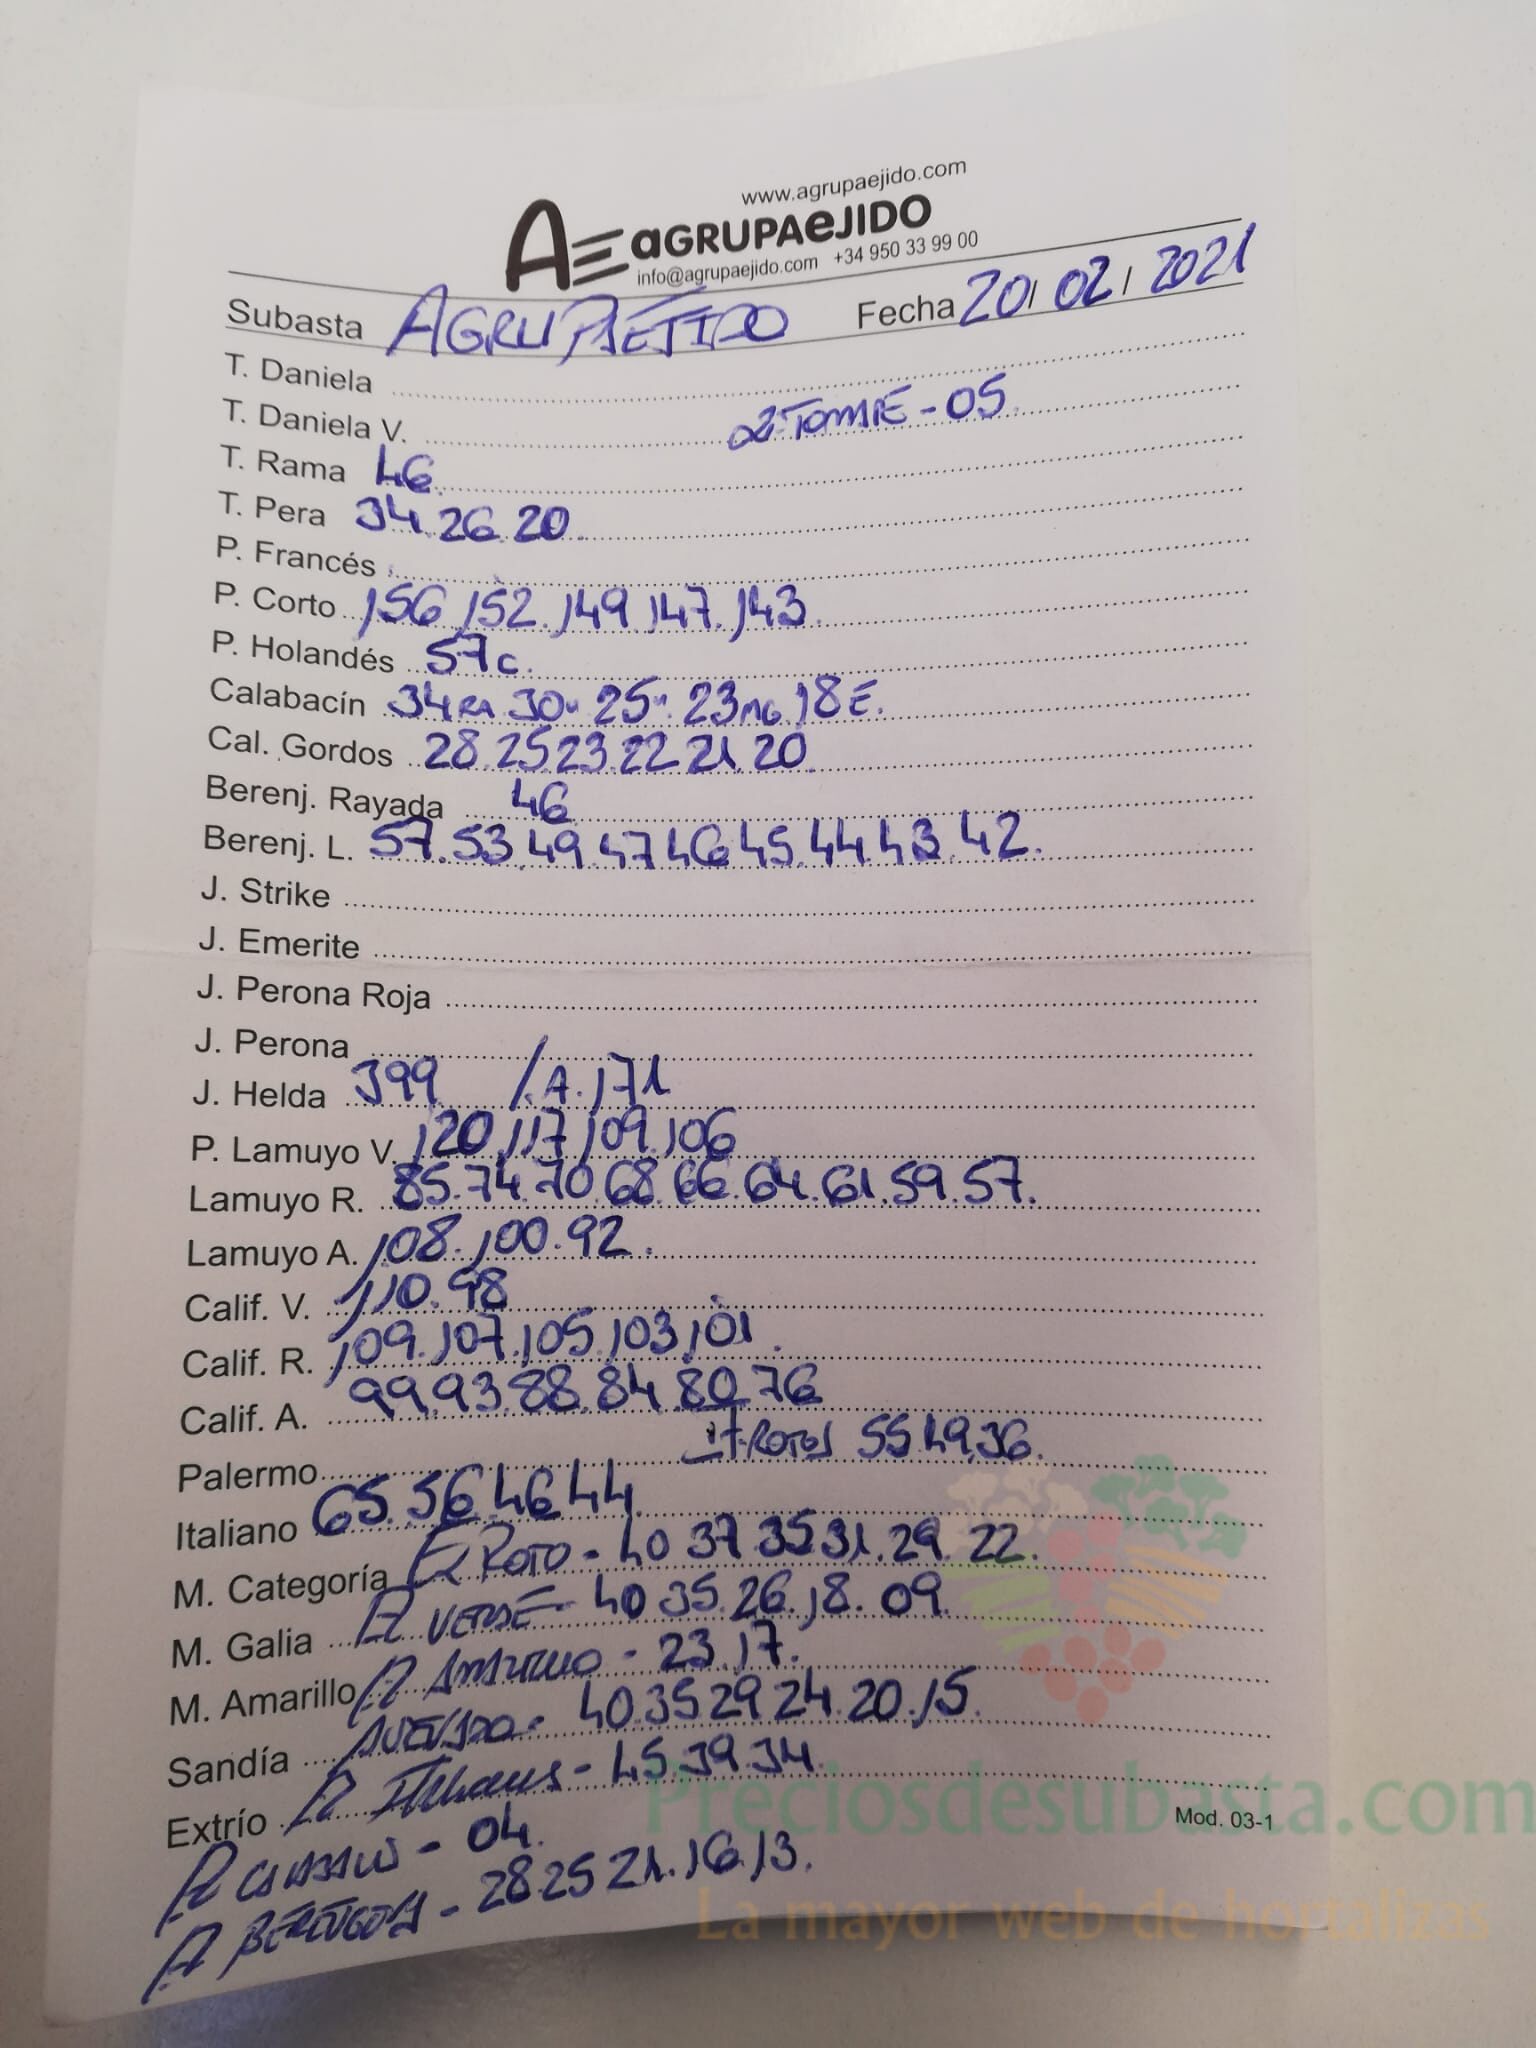 www.agrupaejido.com
AE aGRUPAeJIDO
info@agrupaejido.com +34 950 33 99 00
Subasta AGRUPAEJIDO Fecha 20/ 02 / 2021
T. Daniela
T. Daniela V. - 05
T. Rama 46
T. Pera 34. 26. 20.
P. Francés
P. Corto 156. 152. 149. 147. 143.
P. Holandés 57c.
Calabacín 34RA 30" 25" 23MG 18E.
Cal. Gordos 28. 25 23. 22 21. 20
Berenj. Rayada 46
Berenj. L. 57. 53. 49. 47 46 45. 44 43. 42.
J. Strike
J. Emerite
J. Perona Roja
J. Perona
J. Helda 399 / A. 171
P. Lamuyo V. 120. 117 109. 106
Lamuyo R. 85. 74. 70 68. 66. 64. 61. 59. 57.
Lamuyo A. 108. 100. 92.
Calif. V. 110. 98
Calif. R. 109. 107. 105. 103. 101.
Calif. A. 99. 93. 88. 84. 80. 76
Palermo ROTOS 55 49. 36.
Italiano 65. 56. 46. 44.
M. Categoría ROJO - 40 37 35 31. 29. 22.
M. Galia VERDE - 40 35. 26. 18. 09
M. Amarillo AMARILLO - 23. 17.
Sandía - 40. 35 29 24. 20. 15.
Extrío - 45. 39. 34.
- 04.
BERENGENA - 28 25 21. 16. 13.
Mod. 03-1
Preciosdesubasta.com
La mayor web de hortalizas